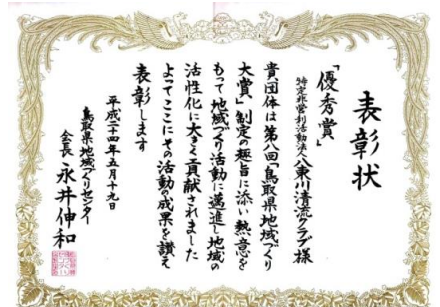 表彰状
「優秀賞」
特定非営利活動法人八東川清流クラブ様
貴団体は第八回「鳥取県地域づくり
大賞」制定の趣旨に添い熱意を
もって地域づくり活動に邁進し地域の
活性化に大きく貢献されました
よってここにその活動の成果を讃え
表彰します
平成二十四年五月十九日
鳥取県地域づくりセンター
会長 永井伸和